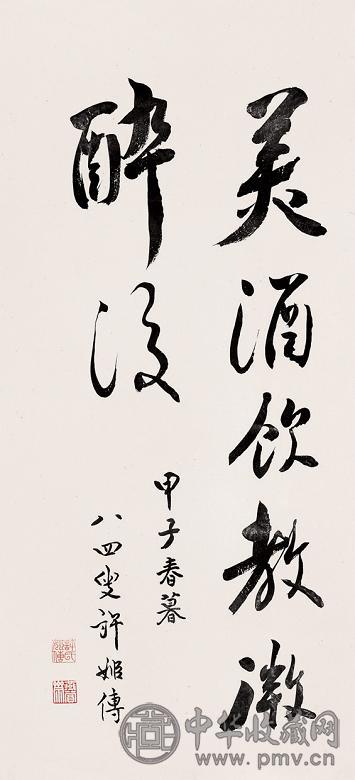 美酒飲教微
醉後
甲子春暮
八四叟許姬傳
中华收藏网
www.pmv.cn